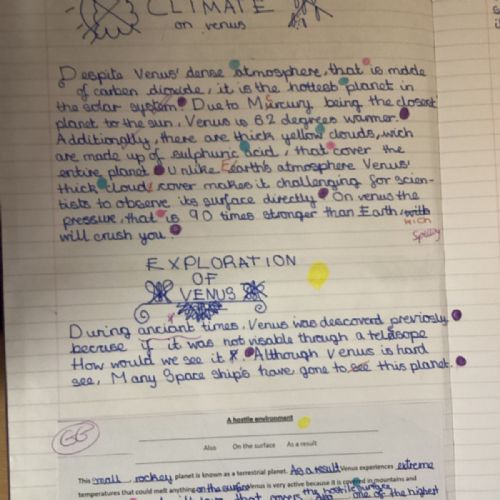 CLIMATE
on venus
Despite Venus' dense atmosphere, that is made
of carben dioxide, it is the hottest planet in
the solar system. Due to Mercury being the closest
planet to the sun, Venus is 62 degrees warmer.
Additionally, there are thick yellow clouds, wich
are made up of sulphuric acid, that cover the
entire planet. Unlike Eearth's atmosphere Venus'
thick cloud, cover makes it challenging for scien-
tists to observe its surface directly. On venus the
pressure, that is 90 times stronger than Earth, with
wich
will crush you.
Spelling
EXPLORATION
OF
VENUS
During anciant times, Venus was descoverd previosly
becruse if it was not visable through a telascope
How would we see it. Although Venus is hard
see, Many Space ship's have gone to see this planet.
GG
A hostile environment
Also On the surface As a result
This small rockey planet is known as a terrestrial planet. As a result Venus experiences extreme
temperatures that could melt anything on the surface Venus is very active because it is covered in mountains and
that covers the
one of the highest